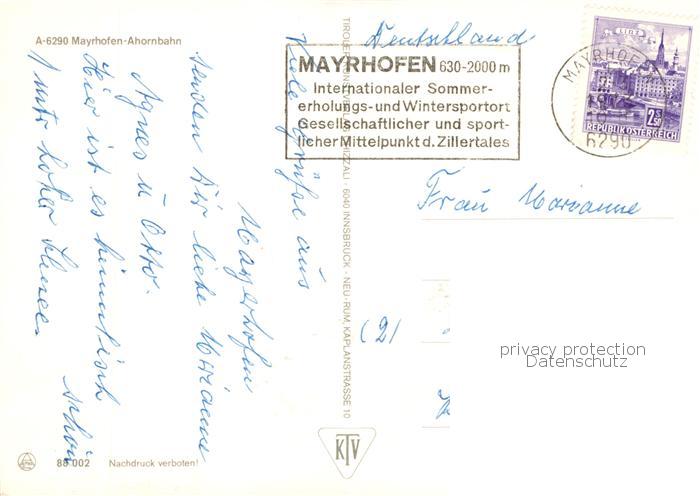 A-6290 Mayrhofen-Ahornbahn
Viele Grüße aus
Mayerhofen
senden Dir liebe Marianne
Agnes u Otto.
Hier ist es himmlisch schön
1 mtr hoher Schnee.
88 002 Nachdruck verboten!
6040 INNSBRUCK - NEU-RUM, KAPLANSTRASSE 10
KTV
MAYRHOFEN 630-2000 m
Internationaler Sommer-
erholungs- und Wintersportort
Gesellschaftlicher und sport-
licher Mittelpunkt d. Zillertales
MAYRHOFEN
6290
LINZ
2.50
REPUBLIK ÖSTERREICH
Deutschland.
Frau Marianne
(2)
privacy protection
Datenschutz